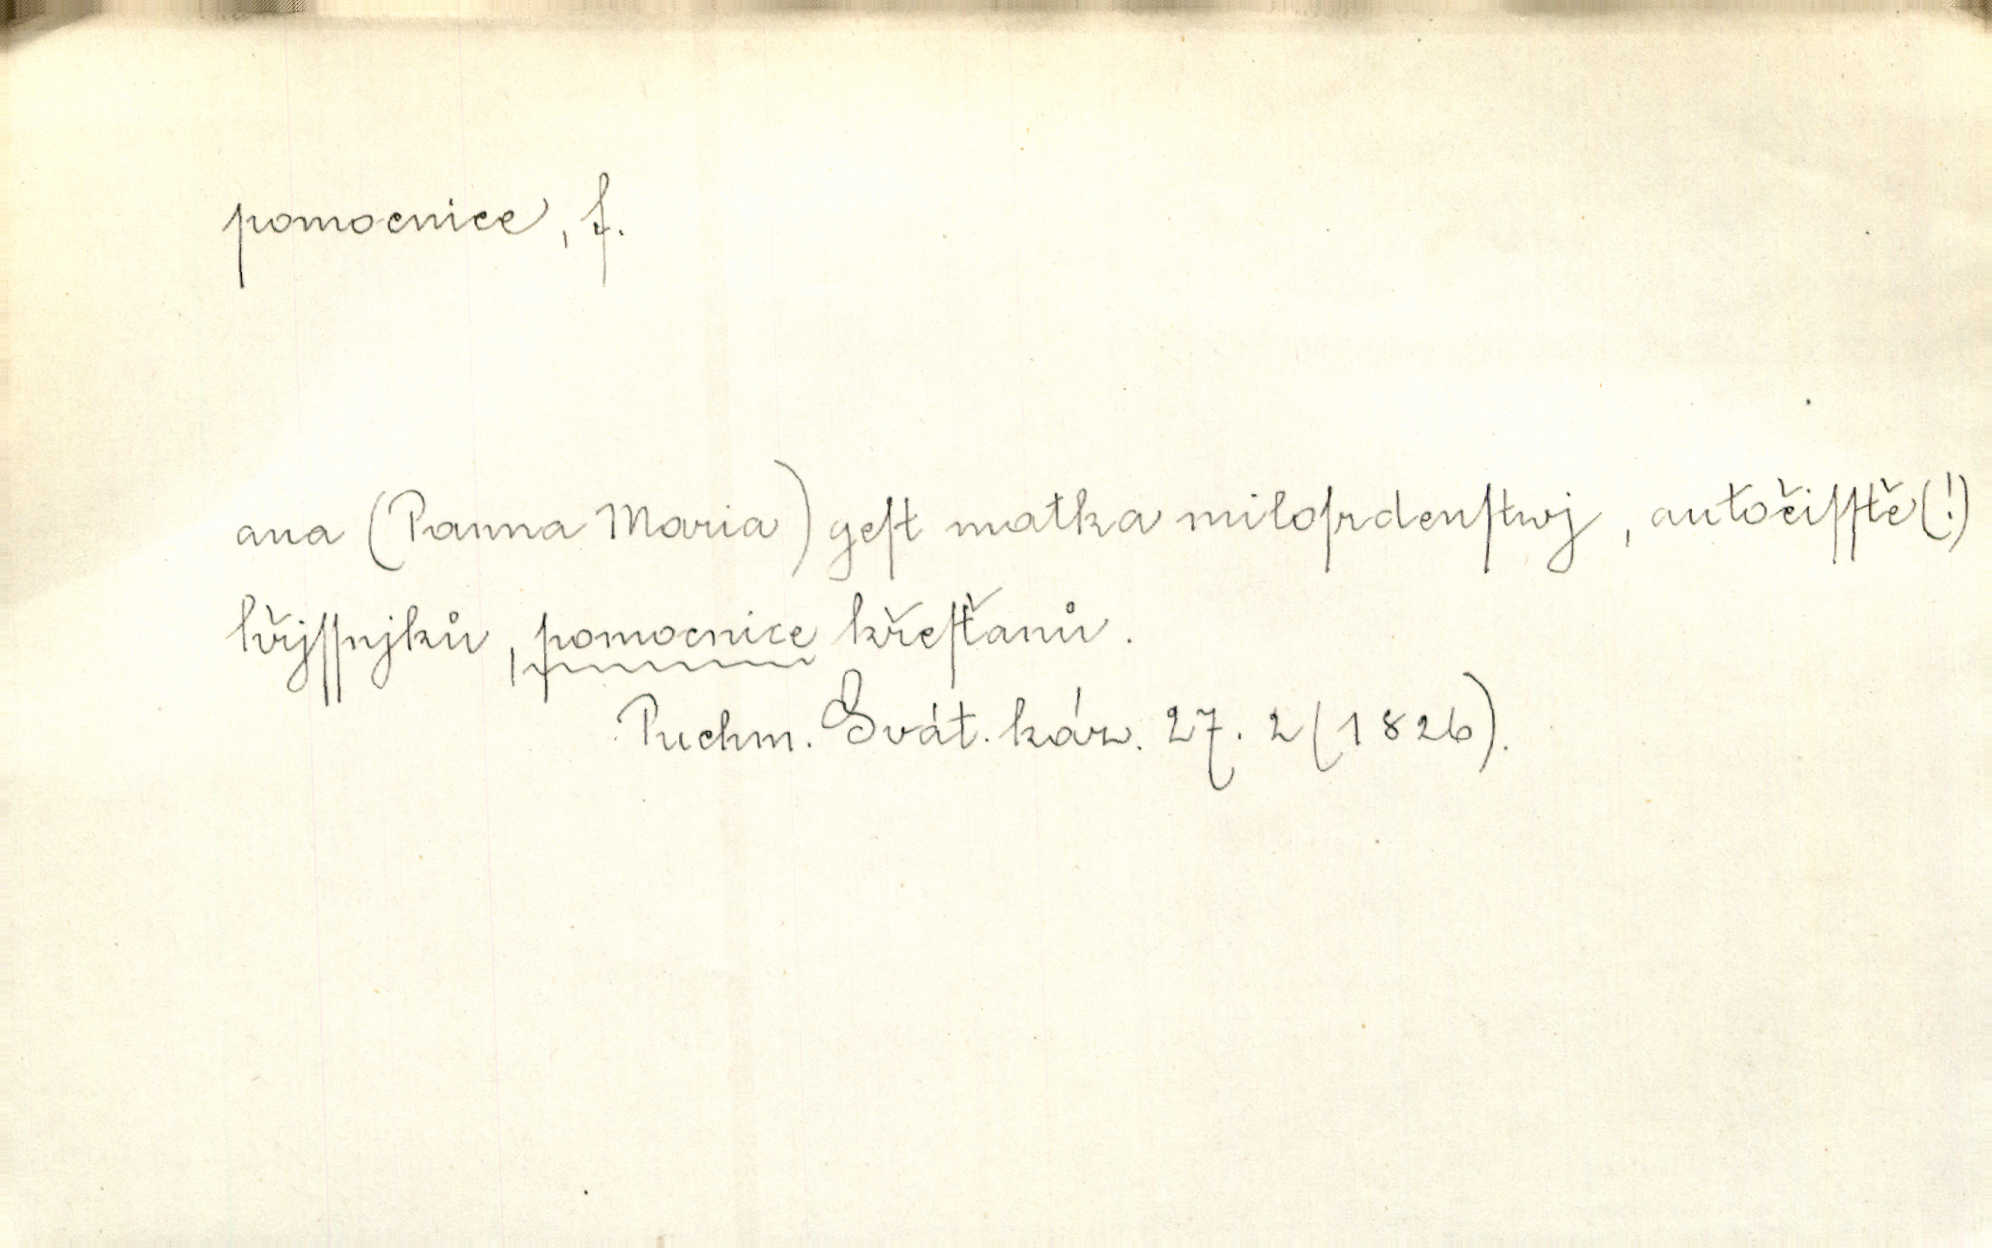 pomocnice, f.
ana (Panna Maria) geſt matka miloſrdenſtwj, autočiſſtě(!)
hřjſſnjků, pomocnice křeſťanů.
Puchm. Svát. káz. 27. 2 (1826).